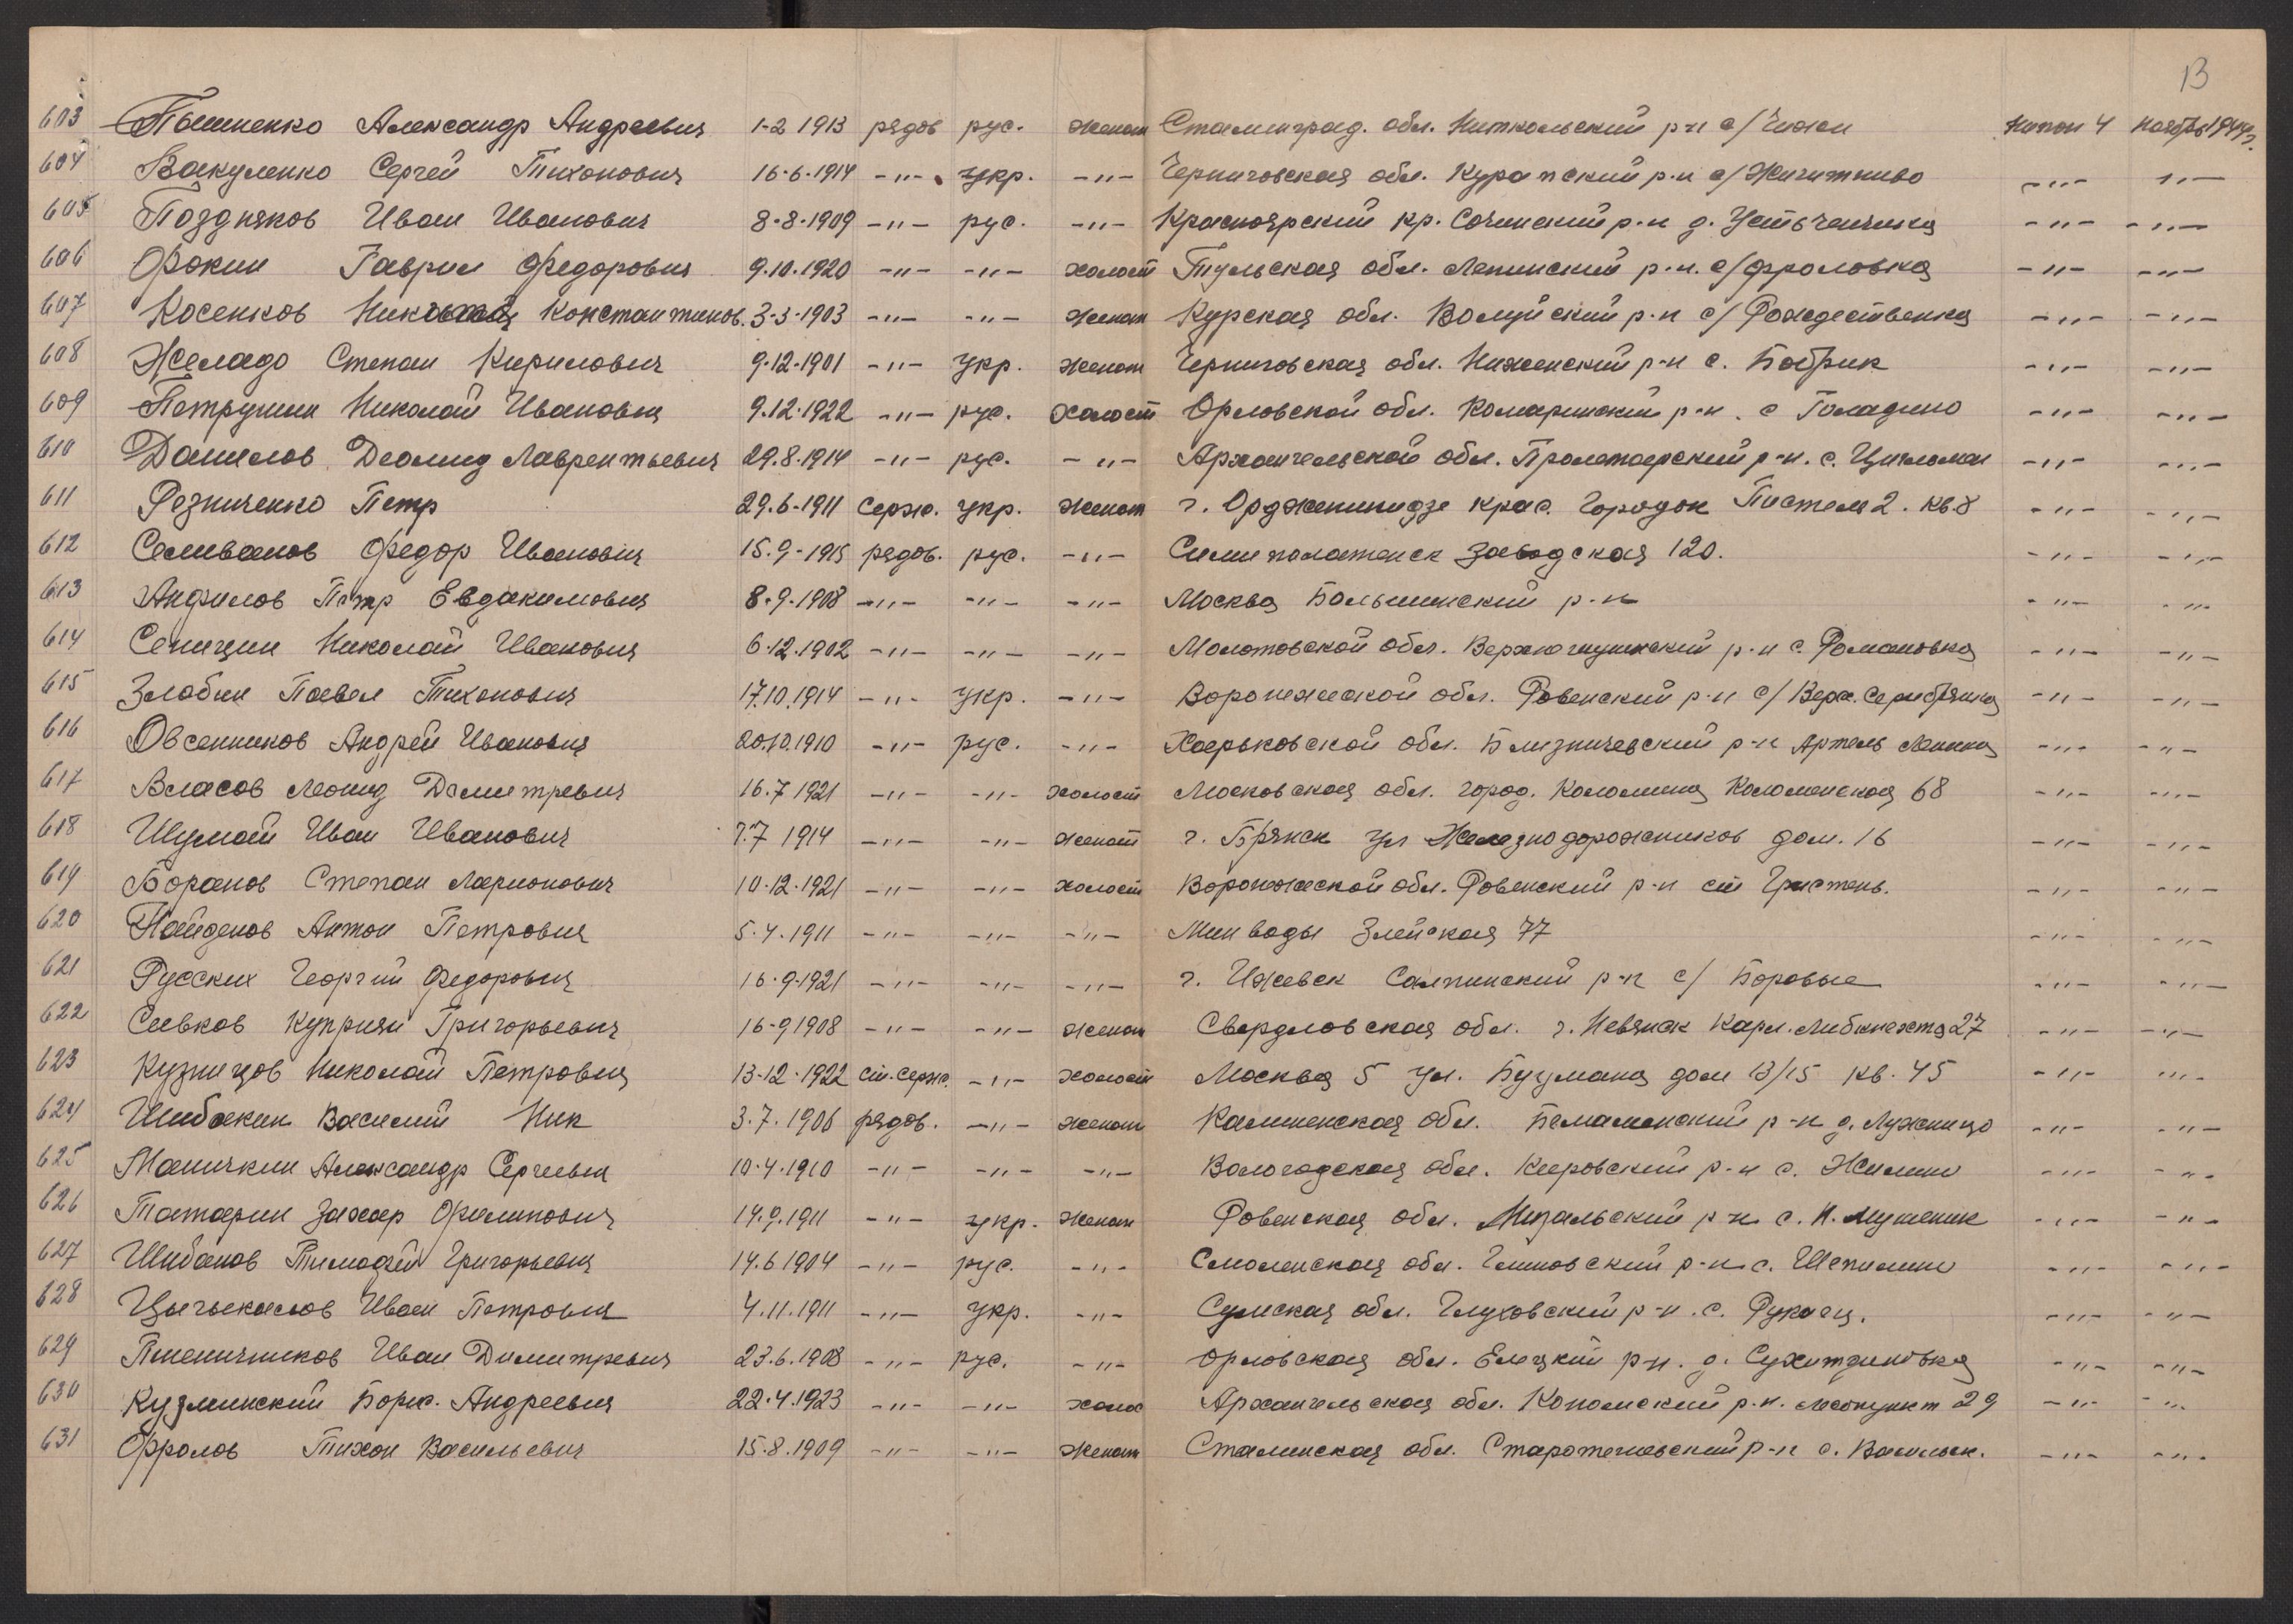 13
603 Пышненко Александр Андреевич 1-2 1913 рядов рус. женат Сталинград. обл. Ниткольский р-н с/ Чижи 4 Ноябрь 1944г.
604 Вакуленко Сергей Тихонович 16-6-1914 -"- укр. -"- Черниговская обл. р-н с/ -"- -"-
605 Поздняков Иван Иванович 8-8-1909 -"- рус. -"- Красноярский кр. р-н д. -"- -"-
606 Фокин Гаврил Федорович 9.10.1920 -"- -"- холост Тульская обл. Ленинский р-н. с/ Фроловка -"- -"-
607 Косенков Константинов. 3-3-1903 -"- -"- женат Курская обл. Волуйский р-н с/ Рождественка -"- -"-
608 Желадо Степан Кирилович 9-12-1901 -"- укр. женат Черниговская обл. Неженский р-н с. Бобрик -"- -"-
609 Петрушин Николай Иванович 9.12.1922 -"- рус. холост Орловской обл. Комаринский р-н. с -"- -"-
610 Данилов Деомид Лаврентьевич 29.8.1914 -"- рус. -"- Архангельской обл. Пролетарский р-н. с. Цигломан -"- -"-
611 Резниченко Петр 29.6-1911 серж. укр. женат г. Орджоникидзе крас. Городок 2. кв.8 -"- -"-
612 Селиванов Федор Иванович 15.9-1915 рядов. рус. -"- Симиполатенск Заводская 120. -"- -"-
613 Анфилов Петр Евдакимович 8-9-1908 -"- -"- -"- Москва р-н -"- -"-
614 Сеницин Николай Иванович 6.12.1902 -"- -"- -"- Молотовской обл. р-н с. Романовка -"- -"-
615 Злобин Павел Тихонович 17.10.1914 -"- укр. -"- Воронежской обл. Ровенский р-н с/ Верх. Серибрянка -"- -"-
616 Овсенников Андрей Иванович 20.10.1910 -"- рус. -"- Харьковской обл. Близничевский р-н Артель Ленина -"- -"-
617 Власов Леонид Дмитревич 16.7 1921 -"- -"- холост Московская обл. город. Коломина Коломенская 68 -"- -"-
618 Шумай Иван Иванович 7.7 1914 -"- -"- женат г. Брянск ул Железнодорожников дом. 16 -"- -"-
619 Боранов Степан Ларионович 10-12-1921 -"- -"- холост Воронежской обл. Ровенский р-н -"- -"-
620 Найденов Антон Петрович 5.4.1911 -"- -"- -"- Мин воды Змейская 77 -"- -"-
621 Русских Георгий Федорович 16-9-1921 -"- -"- -"- г. Ижевск р-н с/ Боровые -"- -"-
622 Сивков Куприян Григорьевич 16-9 1908 -"- -"- женат Свердловская обл. г. Невянск Карл. Либкнехта 27 -"- -"-
623 Кузнецов Николай Петрович 13-12-1922 ст. серж. -"- холост Москва 5 ул. Буумана дом 13/15 кв. 45 -"- -"-
624 Шибакин Василий Ник 3.7.1906 рядов. -"- женат Калиненская обл. р-н д. Лужницо -"- -"-
625 Маничкин Александр Сергеевич 10-4-1910 -"- -"- -"- Вологодская обл. Кировский р-н с. Жилино -"- -"-
626 Татарин Захар Филипович 14.9.1911 -"- укр. женат Ровенская обл. р-н с. -"- -"-
627 Шибанов Тимофей Григорьевич 14.6 1904 -"- рус. -"- Смоленская обл. Глиновский р-н с. Шепилино -"- -"-
628 Иван Петрович 4.11.1911 -"- укр. -"- Сумская обл. Глуховский р-н. с. -"- -"-
629 Пшеничников Иван Димитревич 23.6.1908 -"- рус. -"- Орловская обл. Елецкий р-н. д. -"- -"-
630 Кузминский Борис. Андреевич 22.4.1923 -"- -"- холос Архангельская обл. р-н. лесопункт 29 -"- -"-
631 Фролов Тихон Васильевич 15.8.1909 -"- -"- женат Сталинская обл. р-н с. Васильев. -"- -"-